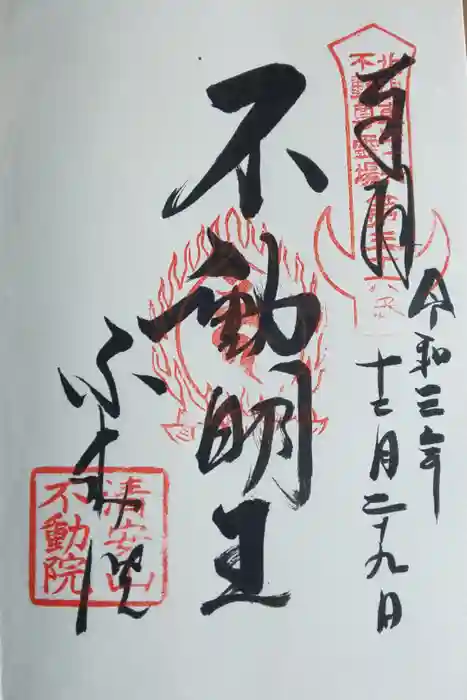 奉拝
令和三年
十二月二十九日
北関東三十六
不動尊霊場
第三十六
不動明王
不動院
清安山
不動院